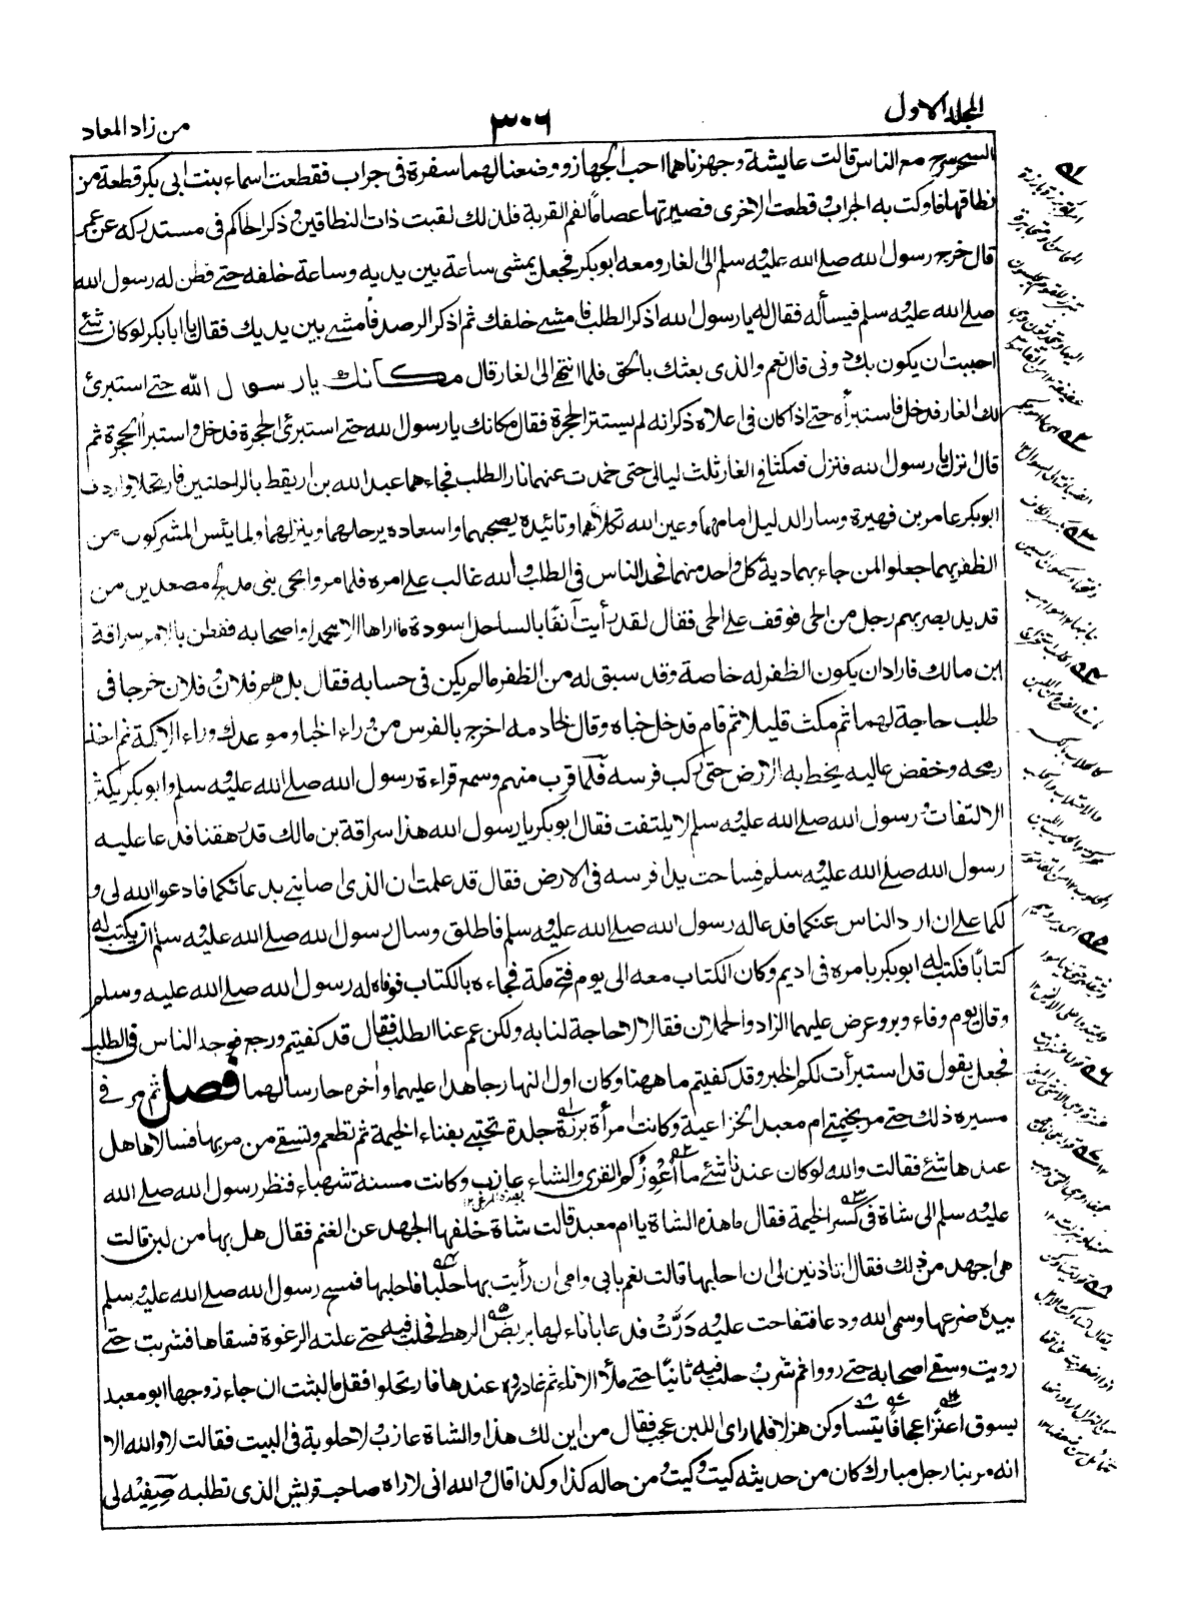 المجلد الاول
٣٠٦
من زاد المعاد
السحر سرح مع الناس قالت عايشة وجهزناهما احب الجهاز ووضعنا لهما سفرة فى جراب فقطعت اسماء بنت ابى بكر قطعة من
نطاقها فاوكت به الجراب وقطعت الاخرى فصيرتها عصاما لفم القربة فلذلك لقبت ذات النطاقين وذكر الحاكم فى مستدركه عن عمر
قال خرج رسول الله صلے الله عليه سلم الى الغار ومعه ابو بكر فجعل يمشى ساعة بين يديه وساعة خلفه حتے فطن له رسول الله
صلے الله عليه سلم فيسأله فقال له يا رسول الله اذكر الطلب فامشے خلفك ثم اذكر الرصد فأمشے بين يديك فقال يا ابا بكر لو كان شئے
احببت ان يكون بك دونى قال نعم والذى بعثك بالحق فلما انتهے الى الغار قال مكانك يا رسول الله حتے استبرئ
لك الغار فدخل فاستبرأه حتے اذا كان فى اعلاه ذكر انه لم يستبئر الحجرة فقال مكانك يا رسول الله حتے استبرئ الحجرة فدخل واستبرأ الحجرة ثم
قال انزل يا رسول الله فنزل فمكثا فى الغار ثلث ليالى حتى خمدت عنهما نار الطلب فجاءهما عبد الله بن اريقط بالراحلتين فارتحلا واردف
ابو بكر عامر بن فهيرة وسار الدليل امامهما وعين الله تكلأهما وتائيده يصحبهما واسعاده يرحلهما وينزلهما ولما يئس المشركون من
الظفر بهما جعلوا لمن جاء بهما دية كل واحد منهما فجد الناس فى الطلب والله غالب علے امره فلما مروا بحى بنى مدلج مصعدين من
قديد بصر بهم رجل من الحى فوقف علے الحى فقال لقد رأيت آنفا بالساحل اسودة ما اراها الا محمدا واصحابه ففطن بالامر سراقة
ابن مالك فاراد ان يكون الظفر له خاصة وقد سبق له من الظفر ما لم يكن فى حسابه فقال بل هم فلان وفلان خرجا فى
طلب حاجة لهما ثم مكث قليلا ثم قام فدخل خباه وقال لخادمه اخرج بالفرس من وراء الخبا وموعدك وراء الاكمة ثم اخذ
رمحه وخفض عاليه يخط به الارض حتى ركب فرسه فلما قرب منهم وسمع قراءة رسول الله صلے الله عليه سلم وابو بكر يكثر
الالتفات ورسول الله صلے الله عليه سلم لا يلتفت فقال ابو بكر يا رسول الله هذا سراقة بن مالك قد رهقنا فدعا عليه
رسول الله صلے الله عليه سلم فساحت يدا فرسه فى الارض فقال قد علمت ان الذى اصابنے بدعائكما فادعوا الله لى و
لكما علے ان ارد الناس عنكما فدعا له رسول الله صلے الله عليه سلم فاطلق وسال رسول الله صلے الله عليه سلم ان يكتب له
كتابا فكتب له ابو بكر بامره فى اديم وكان الكتاب معه الى يوم فتح مكة فجاءه بالكتاب فوفاه له رسول الله صلے الله عليه وسلم
وقال يوم وفاء وبر وعرض عليهما الزاد والحملان فقالا لا حاجة لنا به ولكن عم عنا الطلب فقال قد كفيتم ورجع فوجد الناس فى الطلب
فجعل يقول قد استبرأت لكم الخبر وقد كفيتم ما ههنا وكان اول النهار جاهدا عليهما واخره حارسا لهما فصل ثم مر فى
مسيره ذلك حتے مر بخيمتے ام معبد الخزاعية وكانت امرأة برزة جلدة تحتبے بفناء الخيمة ثم تطعم وتسقے من مر بها فسالاها هل
عندها شئے فقالت والله لو كان عندنا شئے ما أعوزكم القرى والشاء عازب وكانت مسنة شهباء فنظر رسول الله صلے الله
عليه سلم الى شاة فى كسر الخيمة فقال ما هذه الشاة يا ام معبد قالت شاة خلفها الجهد عن الغنم فقال هل بها من لبن قالت
هى اجهد من ذلك فقال اتاذنين لى ان احلبها قالت نعم بابى وامى ان رأيت بها حلبا فاحلبها فمسح رسول الله صلے الله عليه سلم
بيده ضرعها وسمى الله ودعا فتفاحت عليه درت فدعا باناء لها يربض الرهط فحلب فيه حتے علته الرغوة فسقاها فشربت حتے
رويت وسقے اصحابه حتے رووا ثم شرب وحلب فيه ثانيا حتے ملأ الاناء ثم غادره عندها فارتحلوا فقل ما لبثت ان جاء زوجها ابو معبد
يسوق اعنزا عجافا يتساوكن هزلا فلما راى اللبن عجب فقال من اين لك هذا والشاة عازب ولا حلوبة فى البيت فقالت لا والله الا
انه مر بنا رجل مبارك كان من حديثه كيت وكيت ومن حاله كذا وكذا قال والله انى لاراه صاحب قريش الذى تطلبه صفيه لى